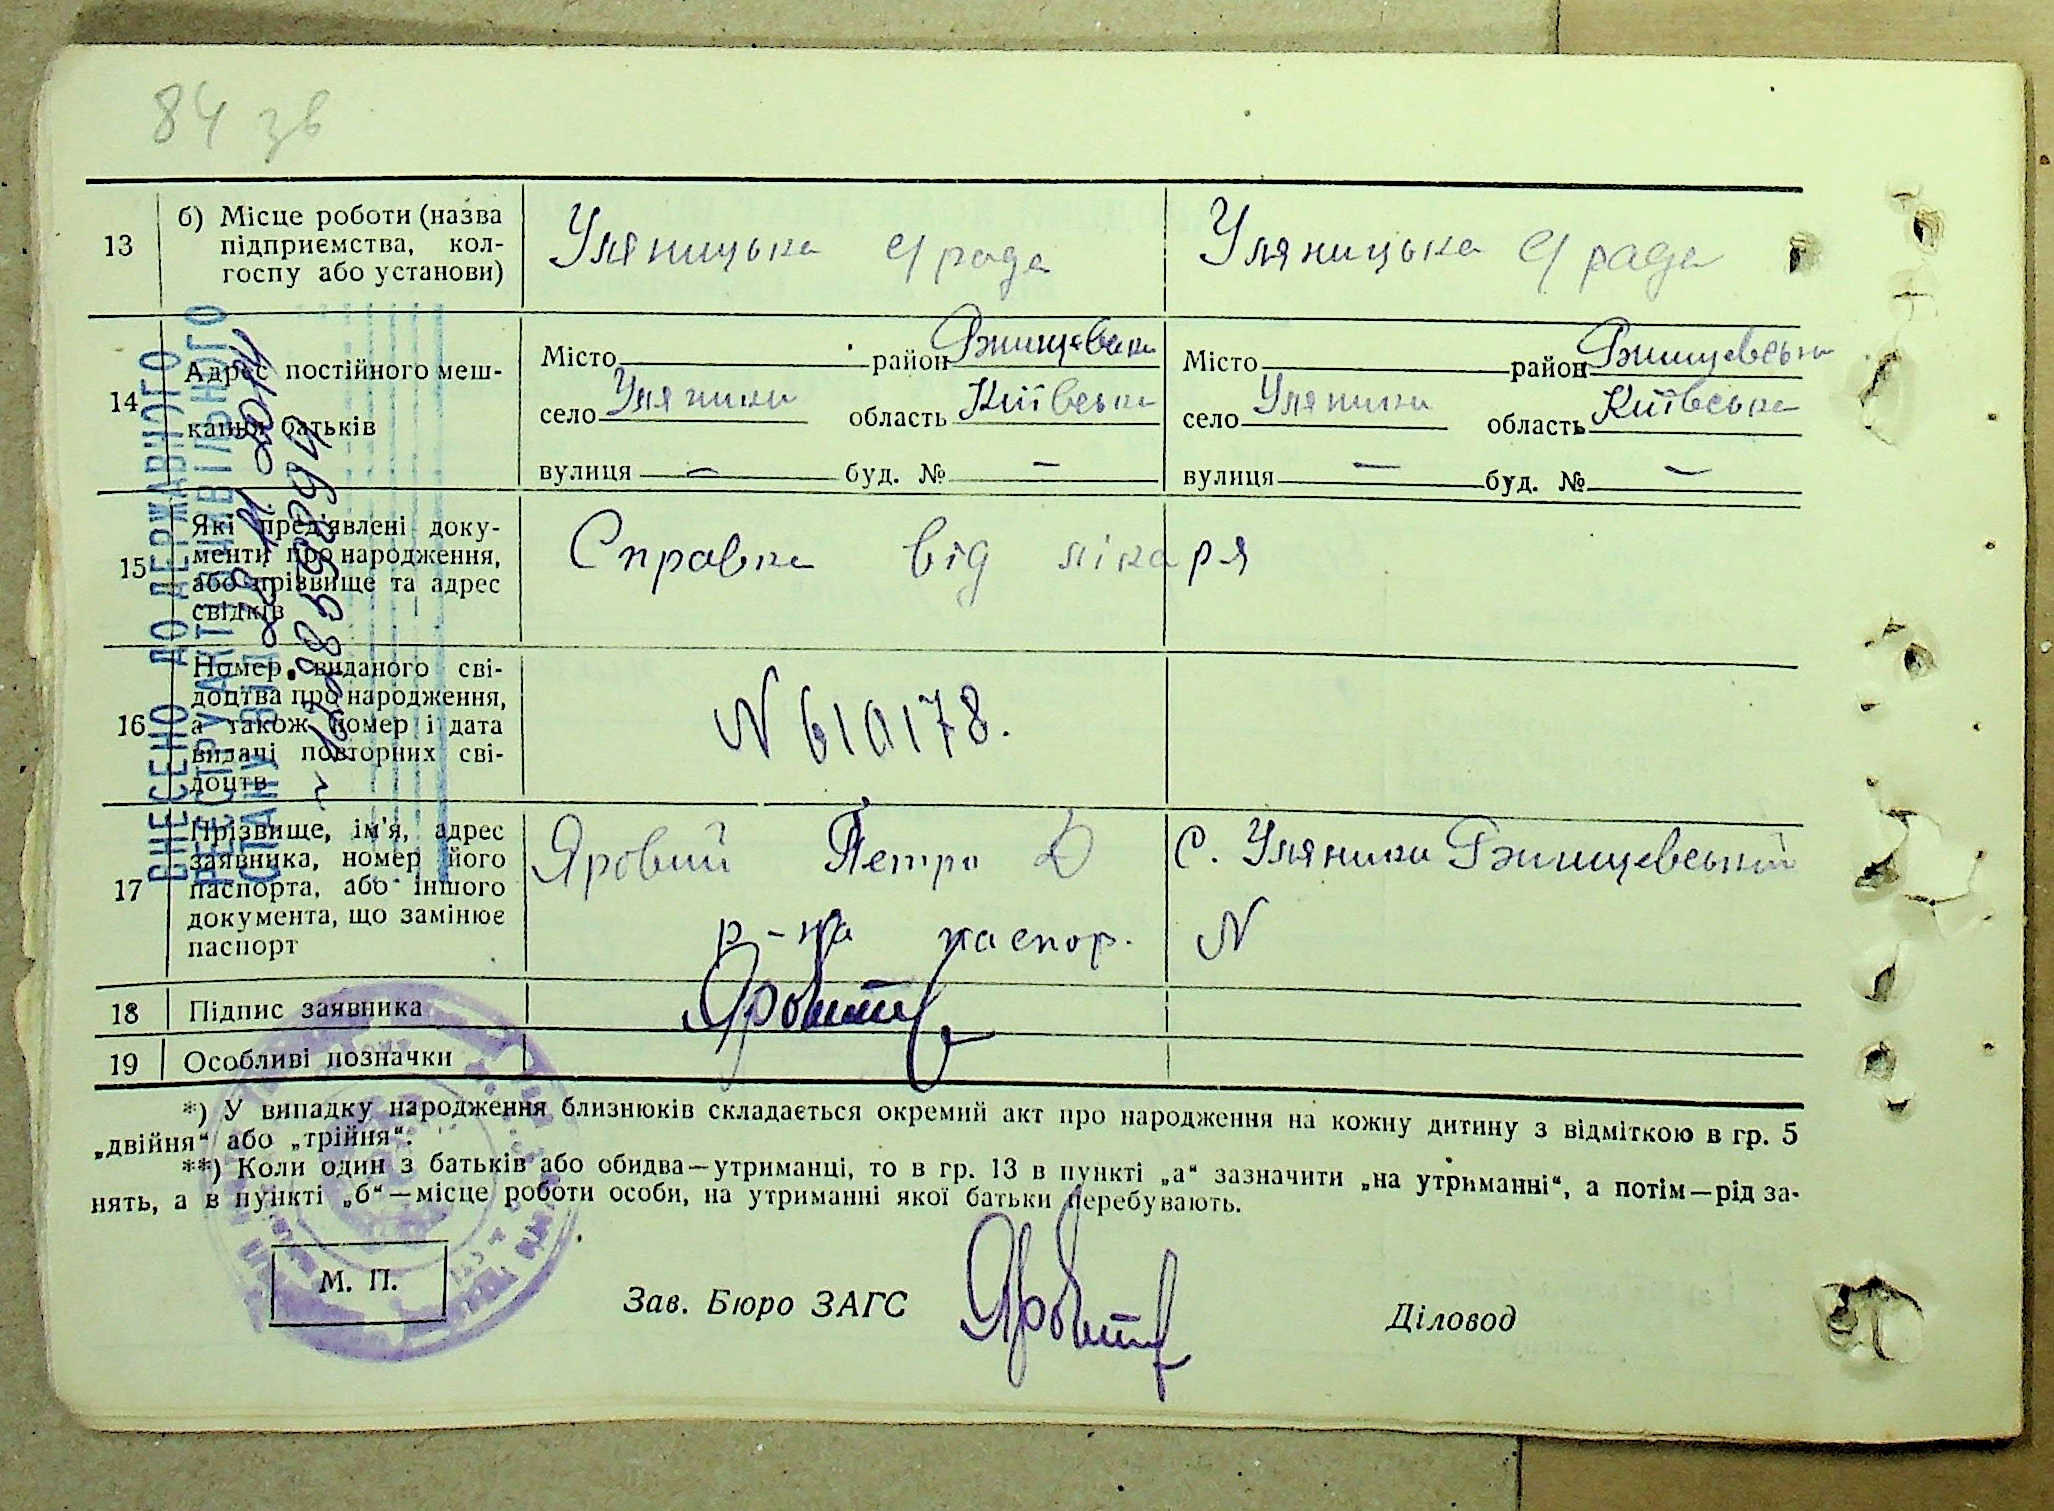 84 зв
13
б) Місце роботи (назва
підприємства, кол-
госпу або установи)
Уляницька с/рада
Уляницька с/рада
14
Адрес постійного меш-
кання батьків
Місто район Ржищевськ
село Уляники область Київська
вулиця — буд. № —
Місто район Ржищевськи
село Уляники область Київська
вулиця — буд. № —
15
Які пред'явлені доку-
менти про народження,
або прізвище та адрес
свідків
Справка від лікаря
16
Номер виданого сві-
доцтва про народження,
а також номер і дата
видачі повторних сві-
доцтв
N 610178.
17
Прізвище, ім'я, адрес
заявника, номер його
паспорта, або іншого
документа, що замінює
паспорт
Яровий Петро Д с. Уляники Ржищевський
р-на паспор. N
18
Підпис заявника
19
Особливі позначки
ВНЕСЕНО ДО ДЕРЖАВНОГО
РЕЄСТРУ АКТІВ ЦИВІЛЬНОГО
СТАНУ
*) У випадку народження близнюків складається окремий акт про народження на кожну дитину з відміткою в гр. 5
„двійня“ або „трійня“.
**) Коли один з батьків або обидва—утриманці, то в гр. 13 в пункті „а“ зазначити „на утриманні“, а потім—рід за-
нять, а в пункті „б“—місце роботи особи, на утриманні якої батьки перебувають.
М. П.
Зав. Бюро ЗАГС
Діловод